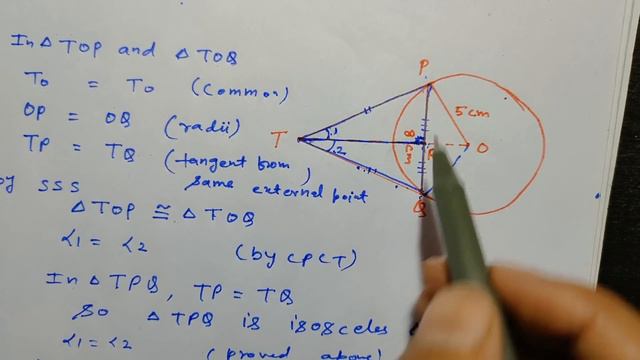 In △ TOP and △ TOQ
TO = TO (common)
OP = OQ (radii)
TP = TQ (tangent from same external point)
by SSS
△ TOP ≅ △ TOQ
∠1 = ∠2 (by CPCT)
In △ TPQ, TP = TQ
so △ TPQ is isosceles
∠1 = ∠2 (proved above)
P
5cm
T
1
2
R
O
Q